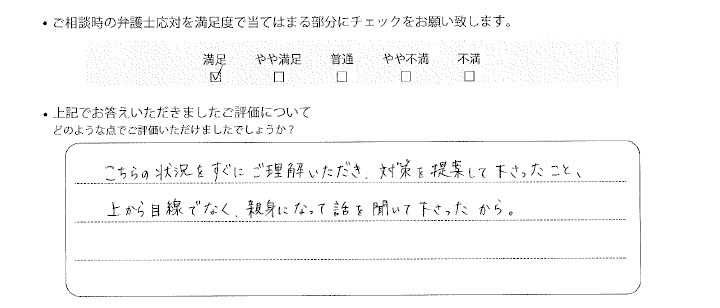 ・ご相談時の弁護士応対を満足度で当てはまる部分にチェックをお願い致します。
満足 やや満足 普通 やや不満 不満
☑ □ □ □ □
・上記でお答えいただきましたご評価について
どのような点でご評価いただけましたでしょうか？
こちらの状況をすぐにご理解いただき、対策を提案して下さったこと、
上から目線でなく、親身になって話を聞いて下さったから。